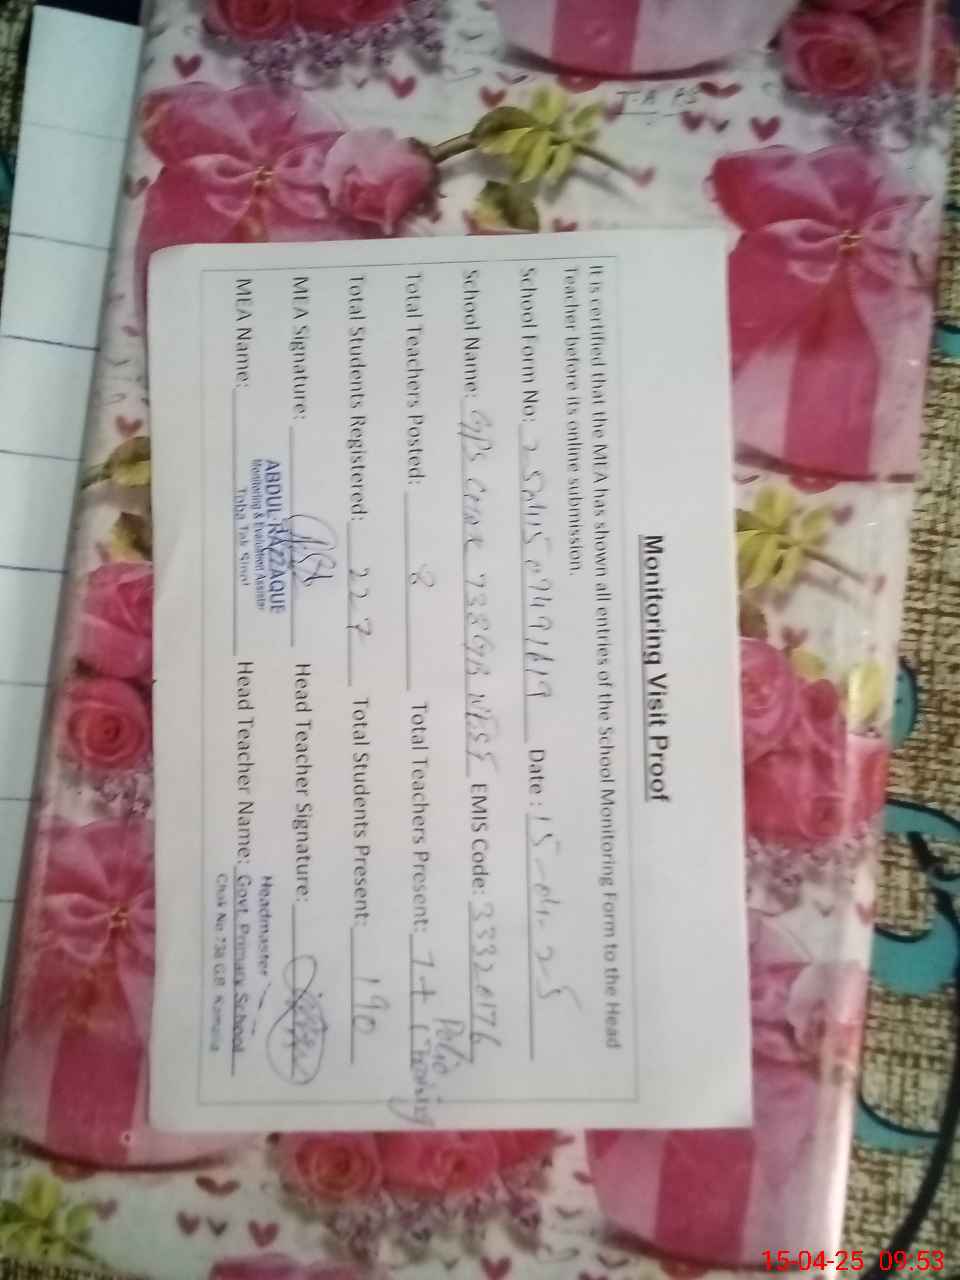 Monitoring Visit Proof
It is certified that the MEA has shown all entries of the School Monitoring Form to the Head
Teacher before its online submission.
School Form No: Date: 15-04-25
School Name: GPS CHAK 738GB WEST EMIS Code: 33320176
Total Teachers Posted: 8 Total Teachers Present: 7+1 Polio
Total Students Registered: 227 Total Students Present: 190
MEA Signature: Head Teacher Signature:
ABDUL RAZZAQUE
Monitoring & Evaluation Assistant
MEA Name: Toba Tek Singh Head Teacher Name:
Headmaster
Govt. Primary School
Chak No 738 G.B. Kamalia
15-04-25 09:53